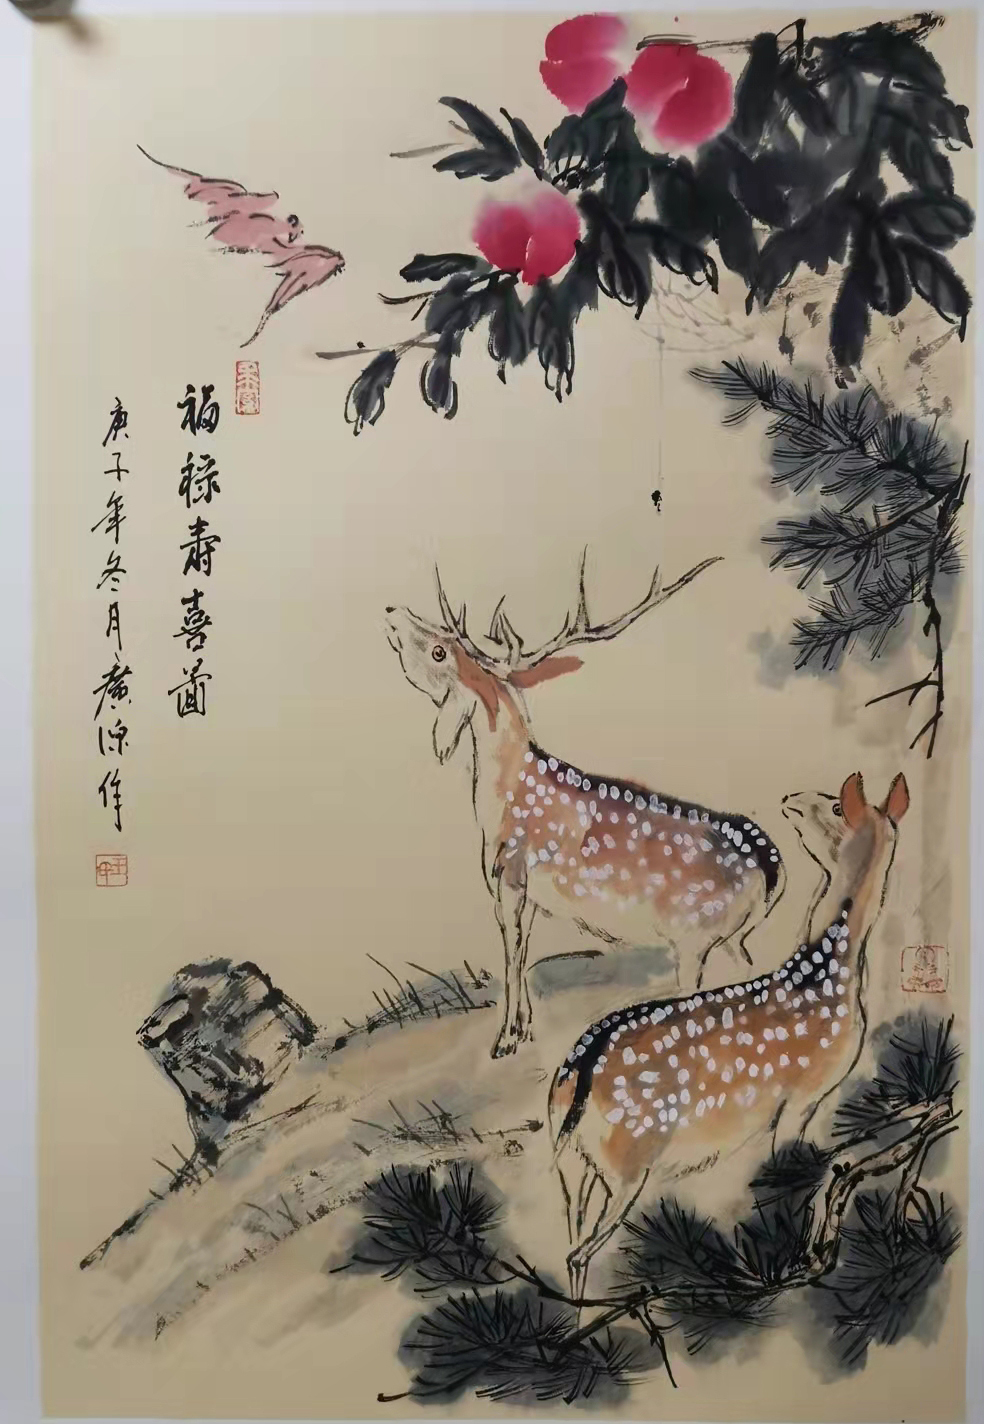 福禄寿喜图
庚子年冬月廣源作